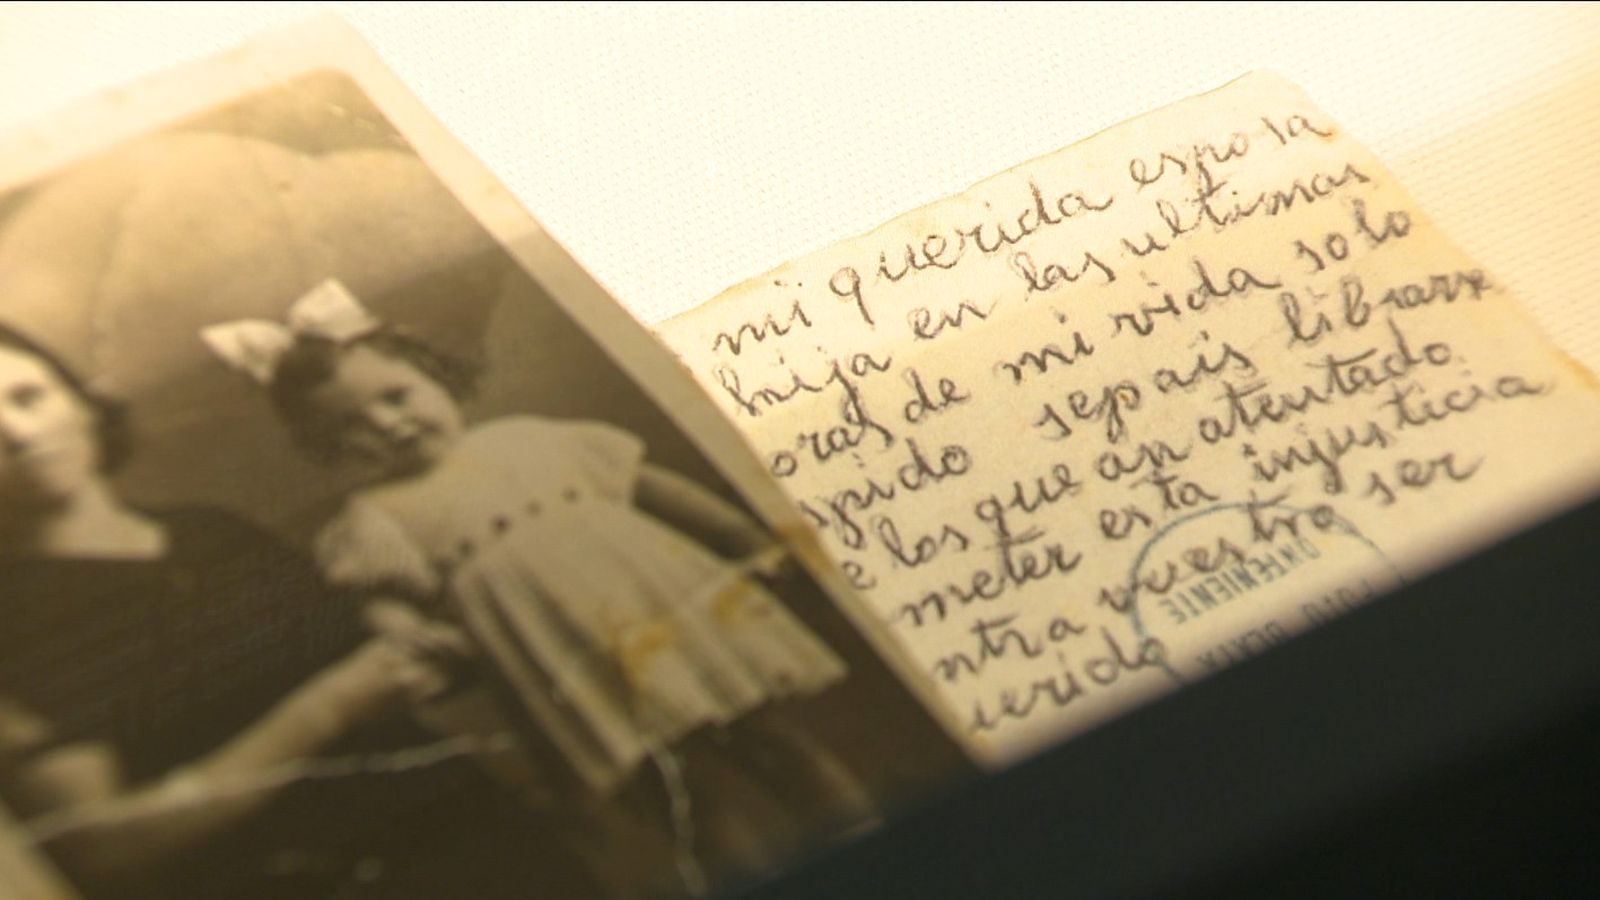 mi querida esposa
hija en las ultimas
oras de mi vida solo
spido sepais librarx
e los que an atentado
meter esta injusticia
ntra vuestro ser
uerido
FOTO
ONTENIENTE